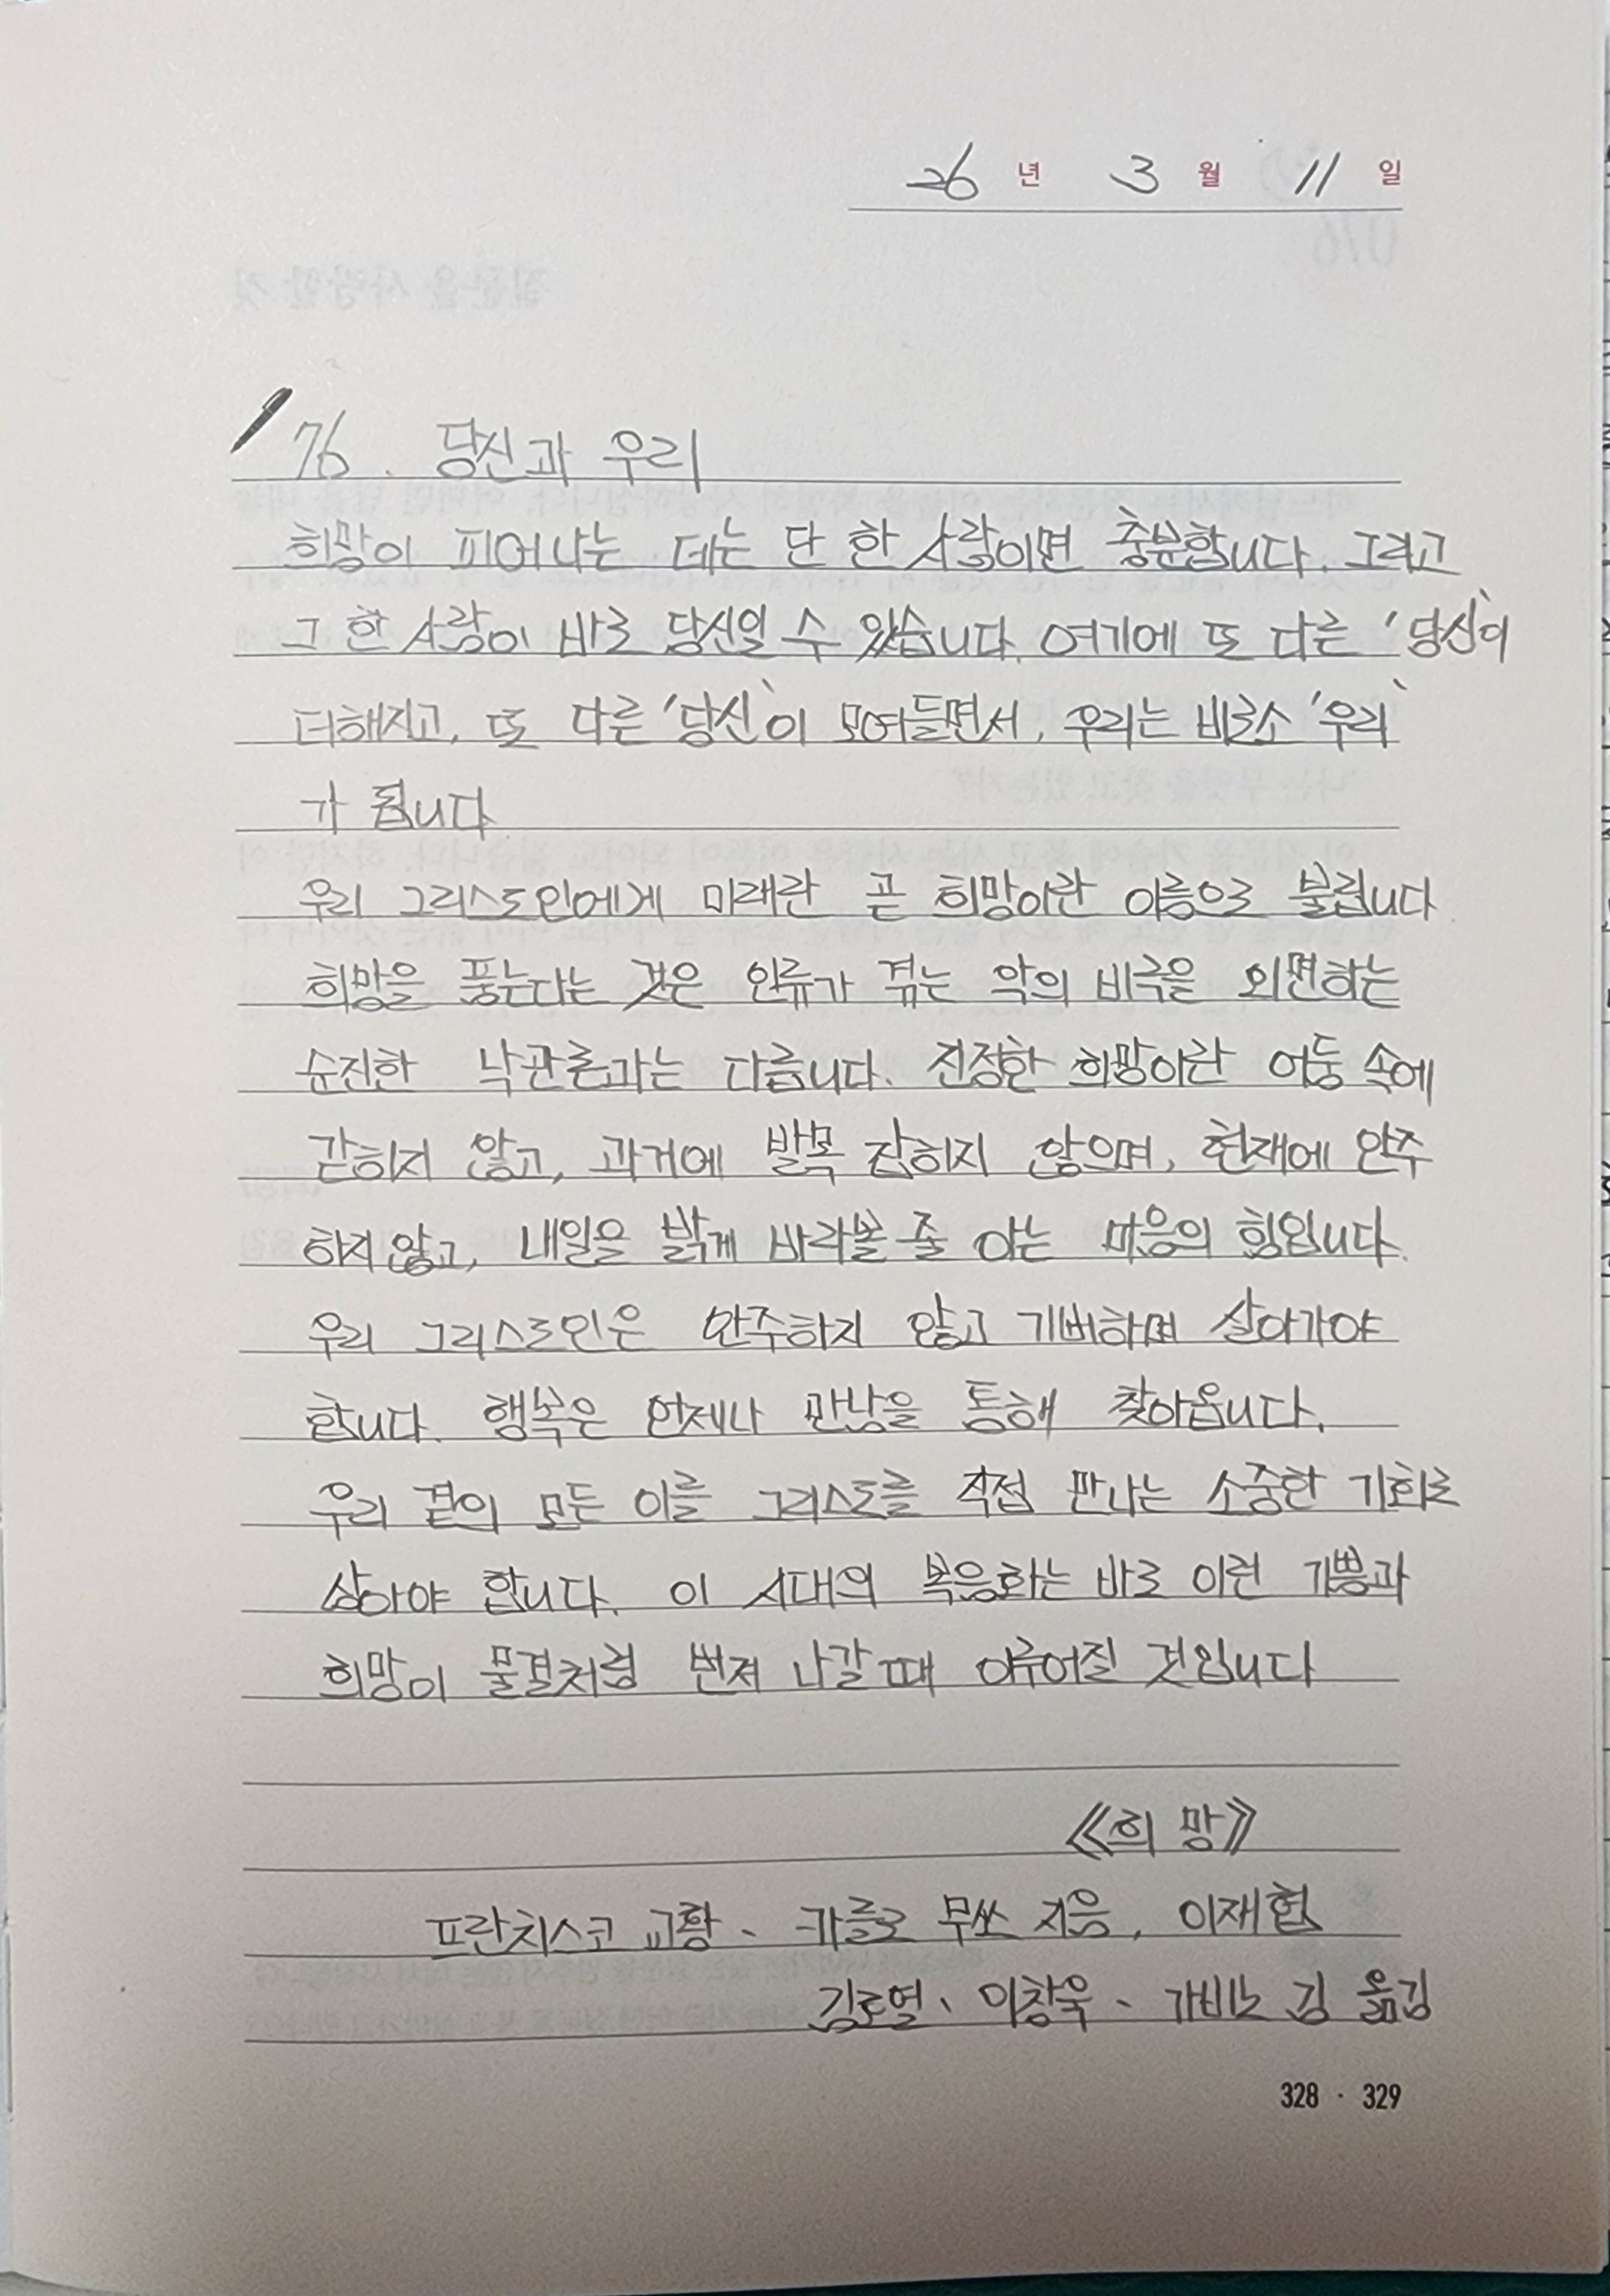 26 년 3 월 11 일
76. 당신과 우리
희망이 피어나는 데는 단 한 사람이면 충분합니다. 그리고
그 한 사람이 바로 당신일 수 있습니다. 여기에 또 다른 '당신'이
더해지고, 또 다른 '당신'이 모여들면서, 우리는 비로소 '우리'
가 됩니다
우리 그리스도인에게 미래란 곧 희망이란 이름으로 불립니다
희망을 품는다는 것은 인류가 겪는 악의 비극을 외면하는
순진한 낙관론과는 다릅니다. 진정한 희망이란 어둠 속에
갇히지 않고, 과거에 발목 잡히지 않으며, 현재에 안주
하지 않고, 내일을 밝게 바라볼 줄 아는 마음의 힘입니다.
우리 그리스도인은 안주하지 않고 기뻐하며 살아가야
합니다. 행복은 언제나 만남을 통해 찾아옵니다.
우리 곁의 모든 이를 그리스도를 직접 만나는 소중한 기회로
삼아야 합니다. 이 시대의 복음화는 바로 이런 기쁨과
희망이 물결처럼 번져 나갈 때 이루어질 것입니다
《희망》
프란치스코 교황、카를로 무쏘 지음, 이재협
김호열、이창욱、가비노 김 옮김
328 · 329